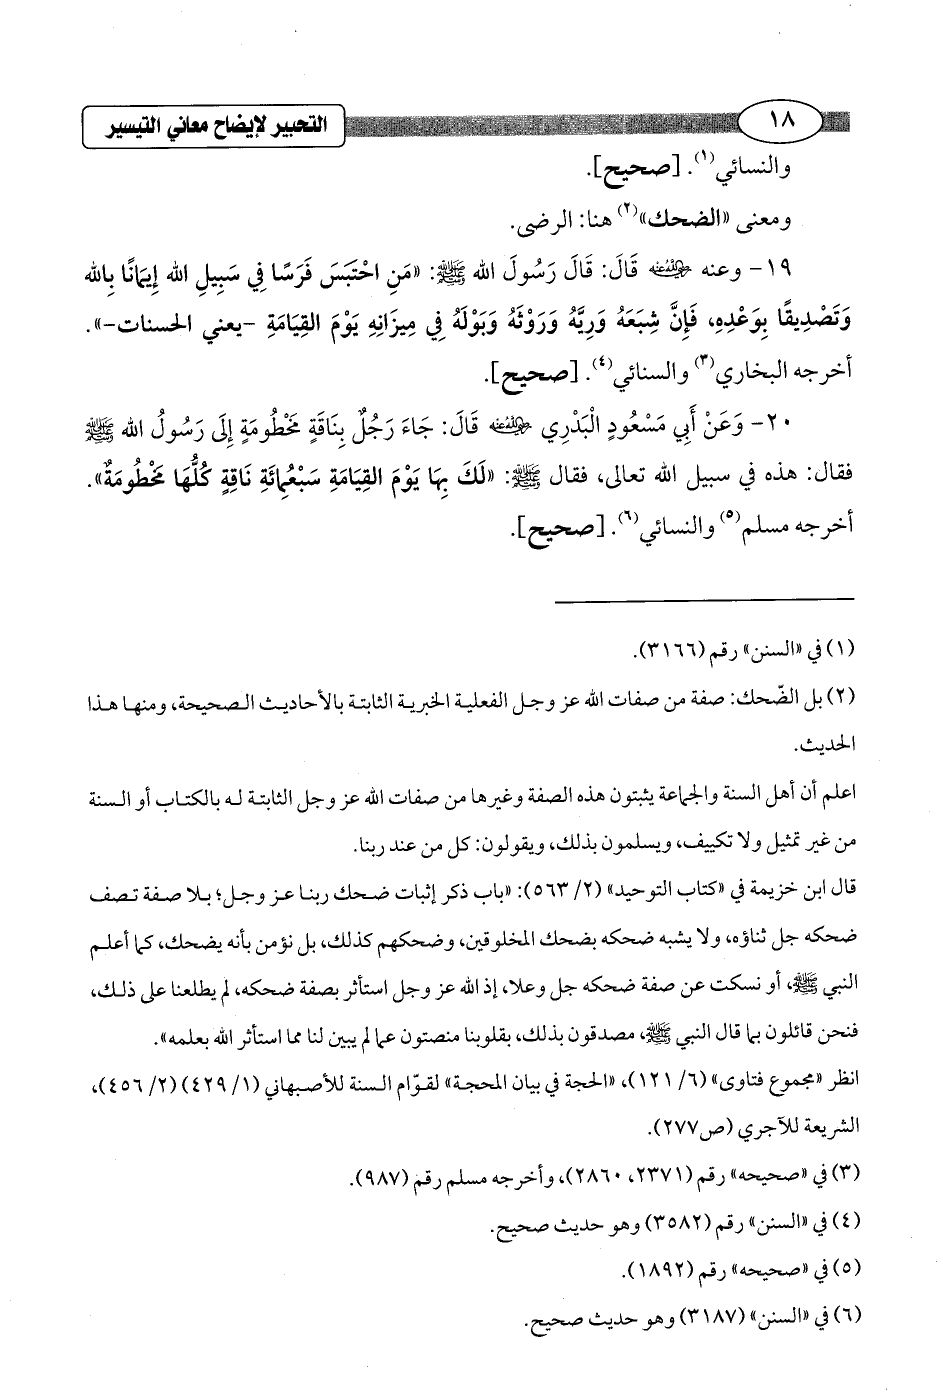 ١٨
التحبير لإيضاح معاني التيسير
والنسائي(١). [صحيح].
ومعنى «الضحك»(٢) هنا: الرضى.
١٩- وعنه رضي الله عنه قَالَ: قَالَ رَسُولَ الله ﷺ: «مَنِ احْتَبَسَ فَرَسًا فِي سَبِيلِ الله إِيمَانًا بِالله
وَتَصْدِيقًا بِوَعْدِهِ، فَإِنَّ شِبَعَهُ وَرِيَّهُ وَرَوْثَهُ وَبَوْلَهُ فِي مِيزَانِهِ يَوْمَ القِيَامَةِ -يعني الحسنات-».
أخرجه البخاري(٣) والسنائي(٤). [صحيح].
٢٠- وَعَنْ أَبِي مَسْعُودٍ الْبَدْرِي رضي الله عنه قَالَ: جَاءَ رَجُلٌ بِنَاقَةٍ مَخْطُومَةٍ إِلَى رَسُولُ الله ﷺ
فقال: هذه في سبيل الله تعالى، فقال ﷺ: «لَكَ بِهَا يَوْمَ القِيَامَةِ سَبْعُمِائَةِ نَاقَةٍ كُلُّهَا مَخْطُومَةٌ».
أخرجه مسلم(٥) والنسائي(٦). [صحيح].
(١) في «السنن» رقم (٣١٦٦).
(٢) بل الضّحك: صفة من صفات الله عز وجل الفعلية الخبرية الثابتة بالأحاديث الصحيحة، ومنها هذا
الحديث.
اعلم أن أهل السنة والجماعة يثبتون هذه الصفة وغيرها من صفات الله عز وجل الثابتة له بالكتاب أو السنة
من غير تمثيل ولا تكييف، ويسلمون بذلك، ويقولون: كل من عند ربنا.
قال ابن خزيمة في «كتاب التوحيد» (٢/ ٥٦٣): «باب ذكر إثبات ضحك ربنا عز وجل؛ بلا صفة تصف
ضحكه جل ثناؤه، ولا يشبه ضحكه بضحك المخلوقين، وضحكهم كذلك، بل نؤمن بأنه يضحك، كما أعلم
النبي ﷺ، أو نسكت عن صفة ضحكه جل وعلا، إذ الله عز وجل استأثر بصفة ضحكه، لم يطلعنا على ذلك،
فنحن قائلون بما قال النبي ﷺ، مصدقون بذلك، بقلوبنا منصتون عما لم يبين لنا مما استأثر الله بعلمه».
انظر «مجموع فتاوى» (٦/ ١٢١)، «الحجة في بيان المحجة» لقوّام السنة للأصبهاني (١/ ٤٢٩) (٢/ ٤٥٦)،
الشريعة للآجري (ص٢٧٧).
(٣) في «صحيحه» رقم (٢٣٧١، ٢٨٦٠)، وأخرجه مسلم رقم (٩٨٧).
(٤) في «السنن» رقم (٣٥٨٢) وهو حديث صحيح.
(٥) في «صحيحه» رقم (١٨٩٢).
(٦) في «السنن» (٣١٨٧) وهو حديث صحيح.